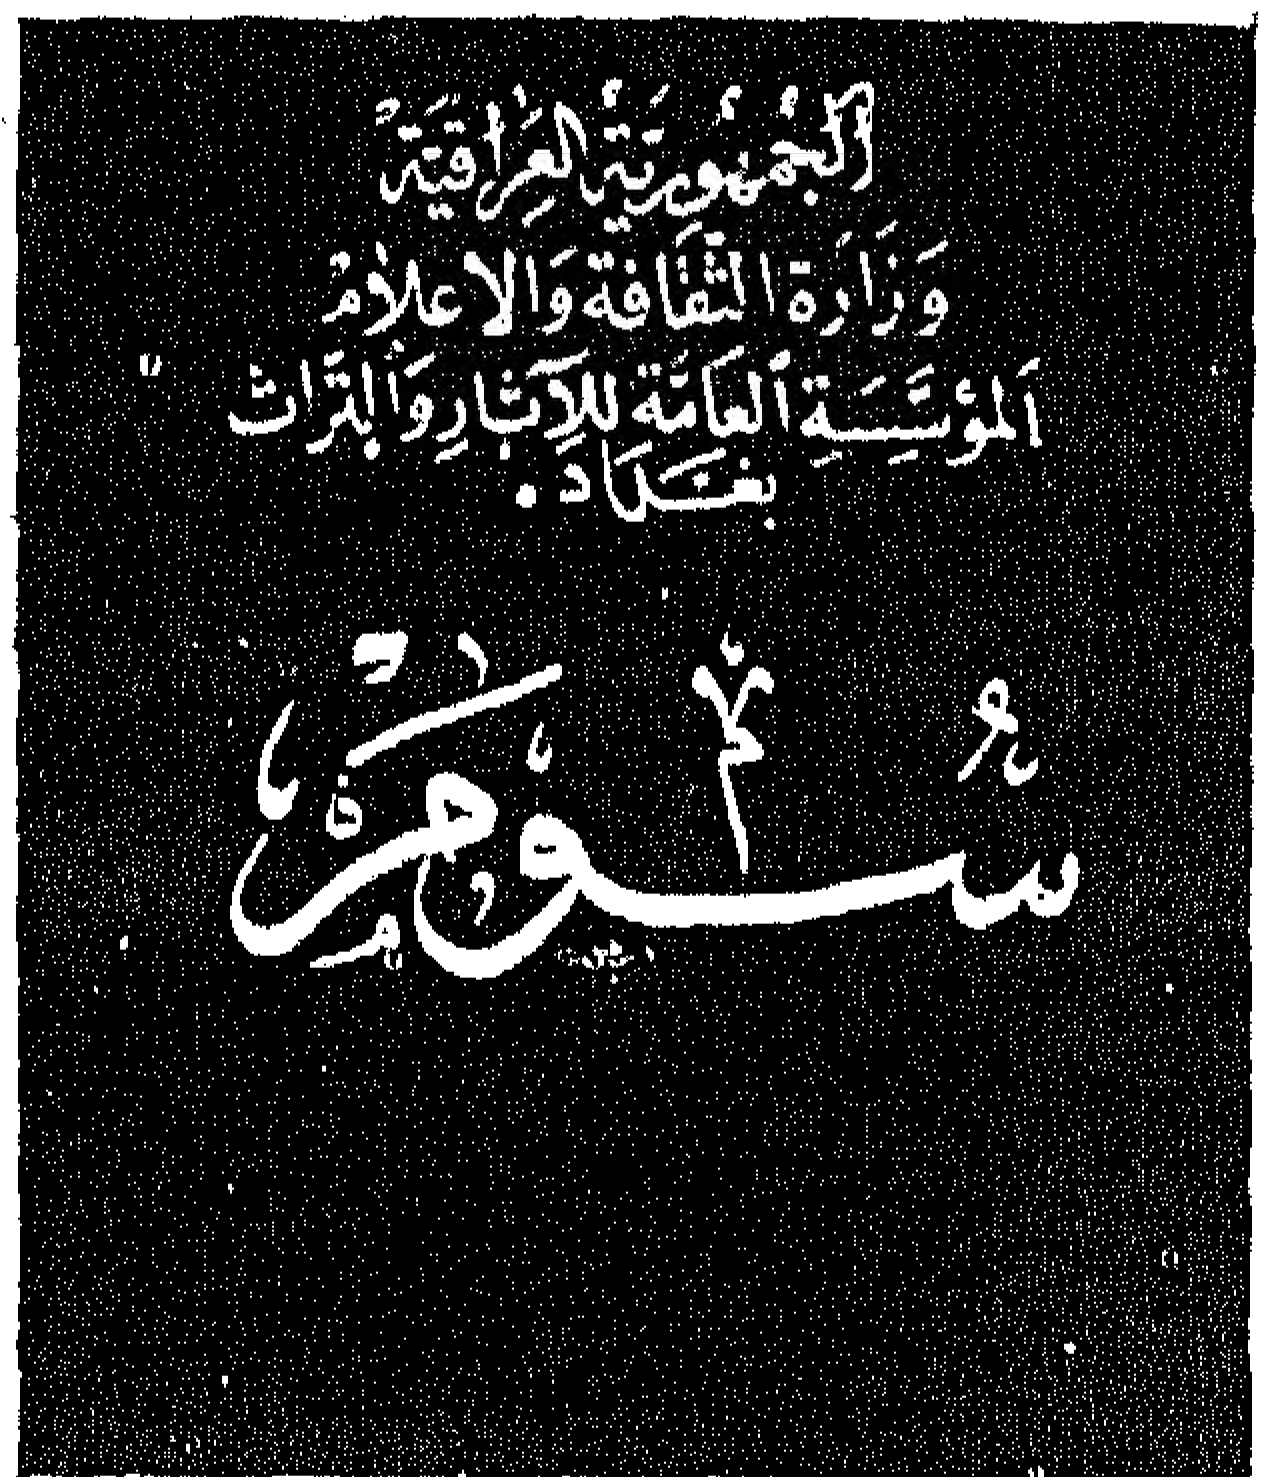 الجُمْهُورِيَّةُ العِرَاقِيَّةُ
وَزَارَة الثَّقَافة وَالاعلَامُ
اَلمؤَسَّسَةِ اَلعَامَّة للِآثَارِ وَالتُّرَاث
بغـدَاد .
سُومَر